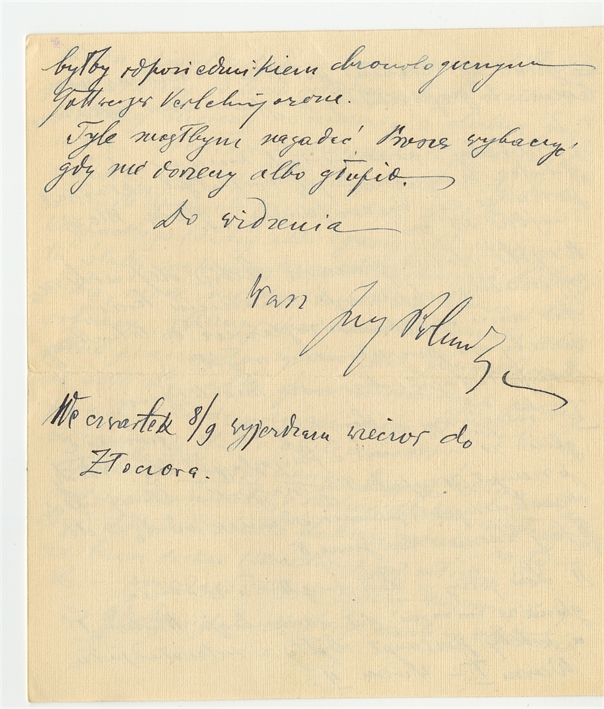 byłby odpowiednikiem chronologicznym
Tyle mógłbym nagadać. Proszę wybaczyć,
gdy nie dorzeczy albo głupio.
Do widzenia
Wasz Jerzy
We czwartek 8/9 wyjeżdżam wieczór do
Złoczowa.